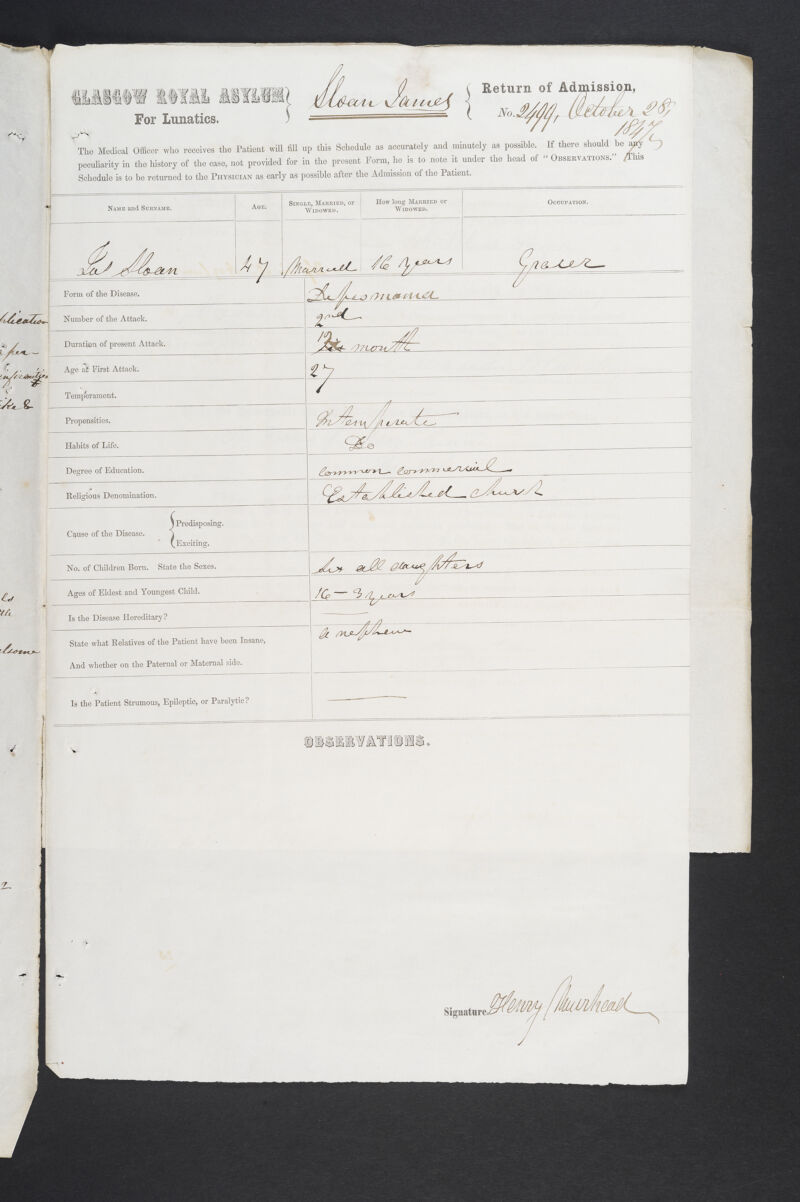 GLASGOW ROYAL ASYLUM
For Lunatics.
Sloan James
Return of Admission,
No. 2499, October 28,
1847
The Medical Officer who receives the Patient will fill up this Schedule as accurately and minutely as possible. If there should be any
peculiarity in the history of the case, not provided for in the present Form, he is to note it under the head of "OBSERVATIONS." This
Schedule is to be returned to the PHYSICIAN as early as possible after the Admission of the Patient.
NAME AND SURNAME. AGE. SINGLE, MARRIED, OR WIDOWED. HOW LONG MARRIED OR WIDOWED. OCCUPATION.
Jas Sloan 47 Married 16 years Grocer
Form of the Disease. Dipsomania
Number of the Attack. 2nd
Duration of present Attack. 12 month
Age at First Attack. 27
Temperament.
Propensities. Intemperate
Habits of Life. Do
Degree of Education. common commercial
Religious Denomination. Established church
Cause of the Disease. Predisposing.
Exciting.
No. of Children Born. State the Sexes. Six all daughters
Ages of Eldest and Youngest Child. 16 – 3 years
Is the Disease Hereditary? —
State what Relatives of the Patient have been Insane, a nephew
And whether on the Paternal or Maternal side.
Is the Patient Strumous, Epileptic, or Paralytic? —
OBSERVATIONS.
Signature Henry Muirhead